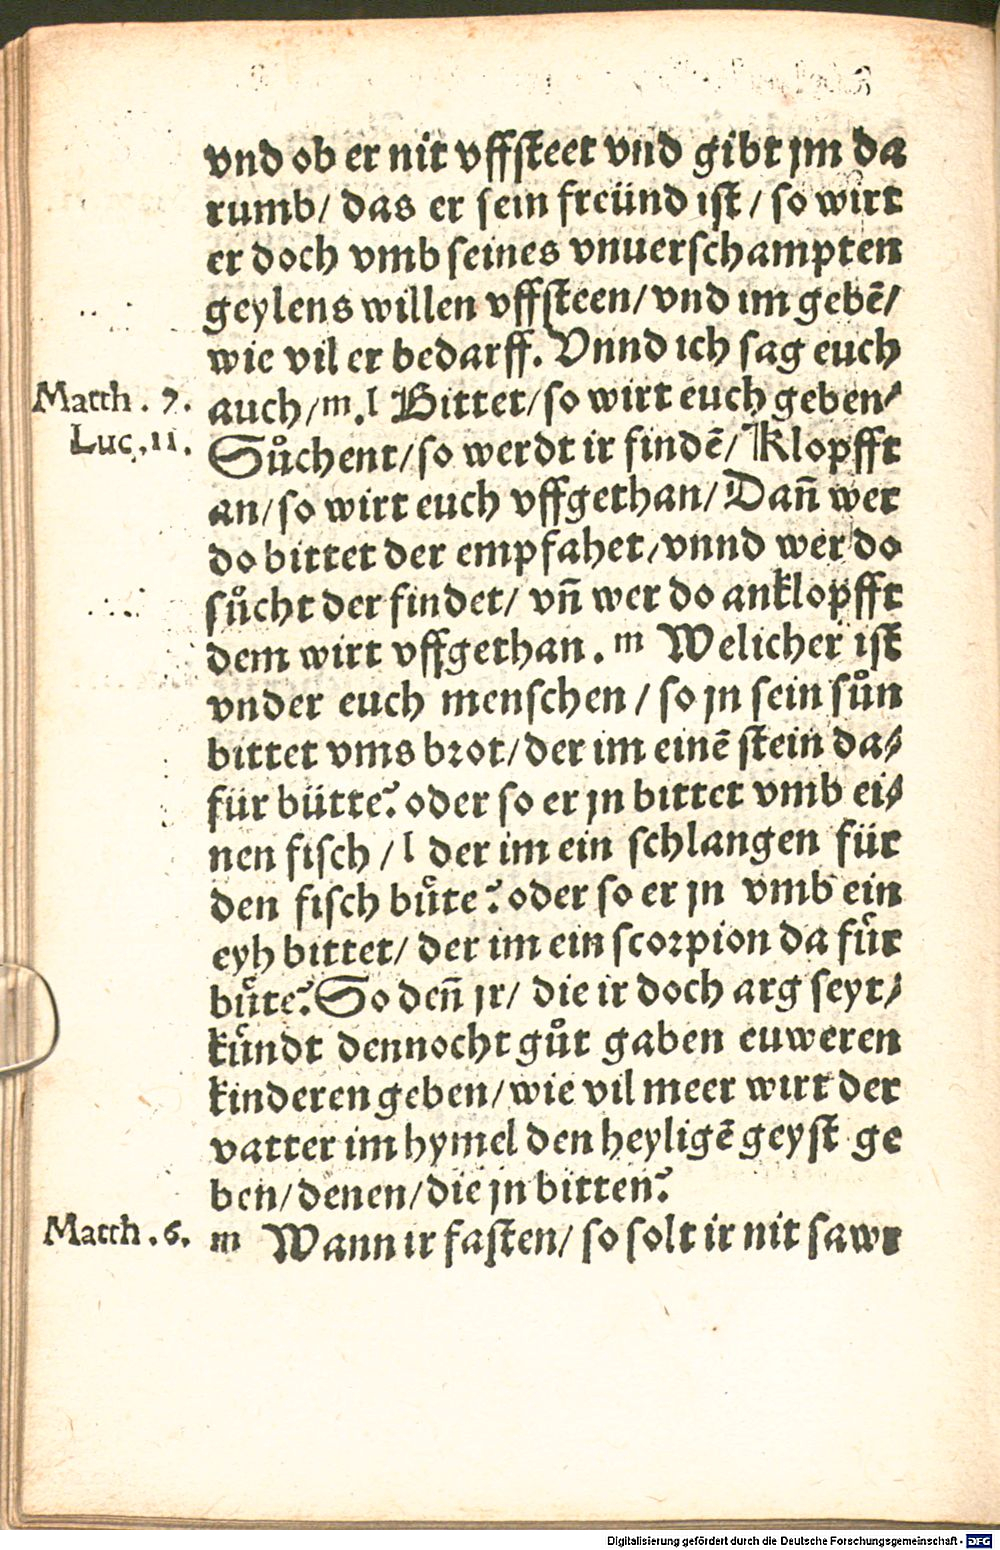 vnd ob er nit vffsteet vnd gibt jm da
rumb/ das er sein freünd ist/ so wirt
er doch vmb seines vnuerschampten
geylens willen vffsteen/ vnd im gebē/
wie vil er bedarff. Vnnd ich sag euch
Matth. 7. auch/ m. l Bittet/ so wirt euch geben/
Luc. 11. Sůchent/ so werdt ir findē/ Klopfft
an/ so wirt euch vffgethan/ Dañ wer
do bittet der empfahet/ vnnd wer do
sůcht der findet/ vñ wer do anklopfft
dem wirt vffgethan. m Welicher ist
vnder euch menschen/ so jn sein sůn
bittet vms brot/ der im einē stein da/
für bütte? oder so er jn bittet vmb ei/
nen fisch/ l der im ein schlangen für
den fisch buͤte? oder so er jn vmb ein
eyh bittet/ der im ein scorpion da fuͤr
buͤte? So deñ jr/ die ir doch arg seyt/
kuͤndt dennocht gůt gaben euweren
kinderen geben/ wie vil meer wirt der
vatter im hymel den heyligē geyst ge
ben/ denen/ die jn bitten?
Matth. 6. m Wann ir fasten/ so solt ir nit sawr
Digitalisierung gefördert durch die Deutsche Forschungsgemeinschaft - DFG